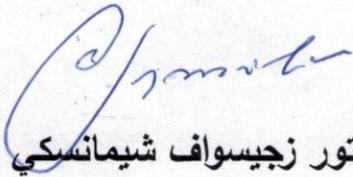 تور زجيسواف شيمانسكي